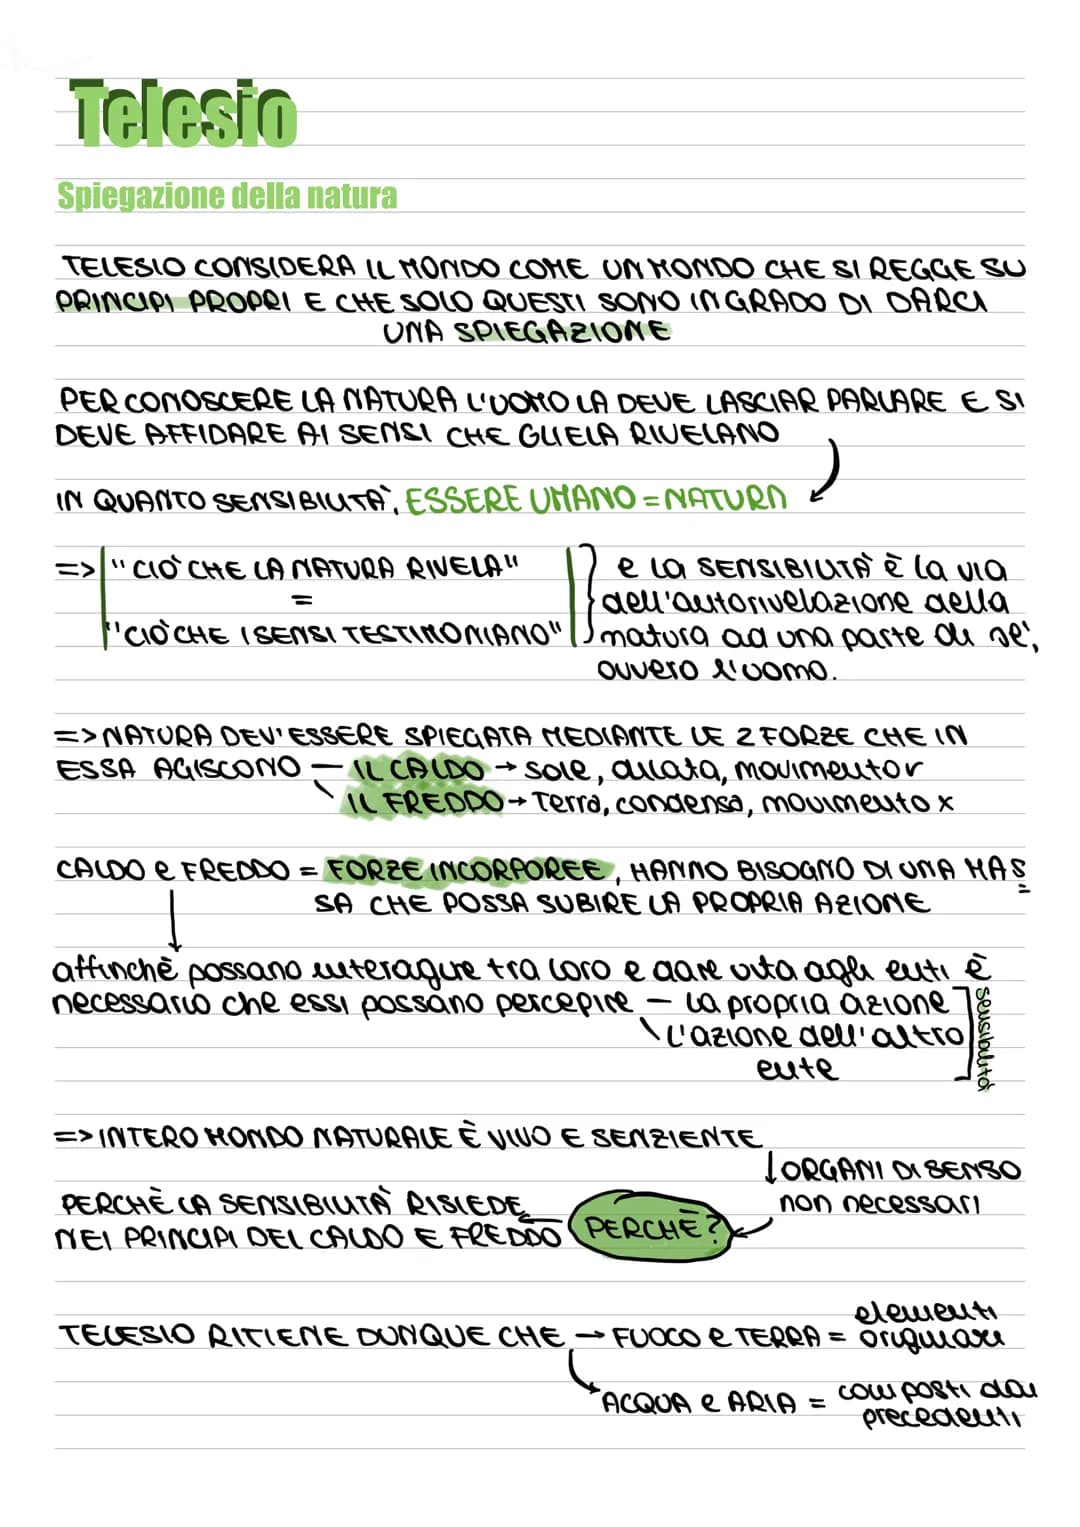 Telesio
Spiegazione della natura
TELESIO CONSIDERA IL MONDO COME UN MONDO CHE SI REGGE SU
PRINCIPI PROPRI E CHE SOLO QUESTI SONO IN GRADO DI DARCI
UNA SPIEGAZIONE
PER CONOSCERE LA NATURA L'UOMO LA DEVE LASCIAR PARLARE E SI
DEVE AFFIDARE AI SENSI CHE GLIELA RIVELANO
IN QUANTO SENSIBILITÀ, ESSERE UMANO = NATURA
=> "CIÒ CHE LA NATURA RIVELA"
=
"CIÒ CHE I SENSI TESTIMONIANO"
e la SENSIBILITÀ È la via
dell'autorivelazione della
natura ad una parte di sé,
ovvero l'uomo.
=> NATURA DEV'ESSERE SPIEGATA MEDIANTE LE 2 FORZE CHE IN
ESSA AGISCONO — IL CALDO → sole, dilata, movimento✓
\ IL FREDDO → Terra, condensa, movimento x
CALDO e FREDDO = FORZE INCORPOREE, HANNO BISOGNO DI UNA MAS
SA CHE POSSA SUBIRE LA PROPRIA AZIONE
affinchè possano interagire tra loro e dare vita agli enti è
necessario che essi possano percepire — la propria azione
\ L'azione dell'altro
ente
sensibilità
=> INTERO MONDO NATURALE È VIVO E SENZIENTE
↓ ORGANI DI SENSO
non necessari
PERCHÈ?
PERCHÈ LA SENSIBILITÀ RISIEDE
NEI PRINCIPI DEL CALDO E FREDDO
TELESIO RITIENE DUNQUE CHE → FUOCO e TERRA = elementi
originari
ACQUA e ARIA = composti dai
precedenti